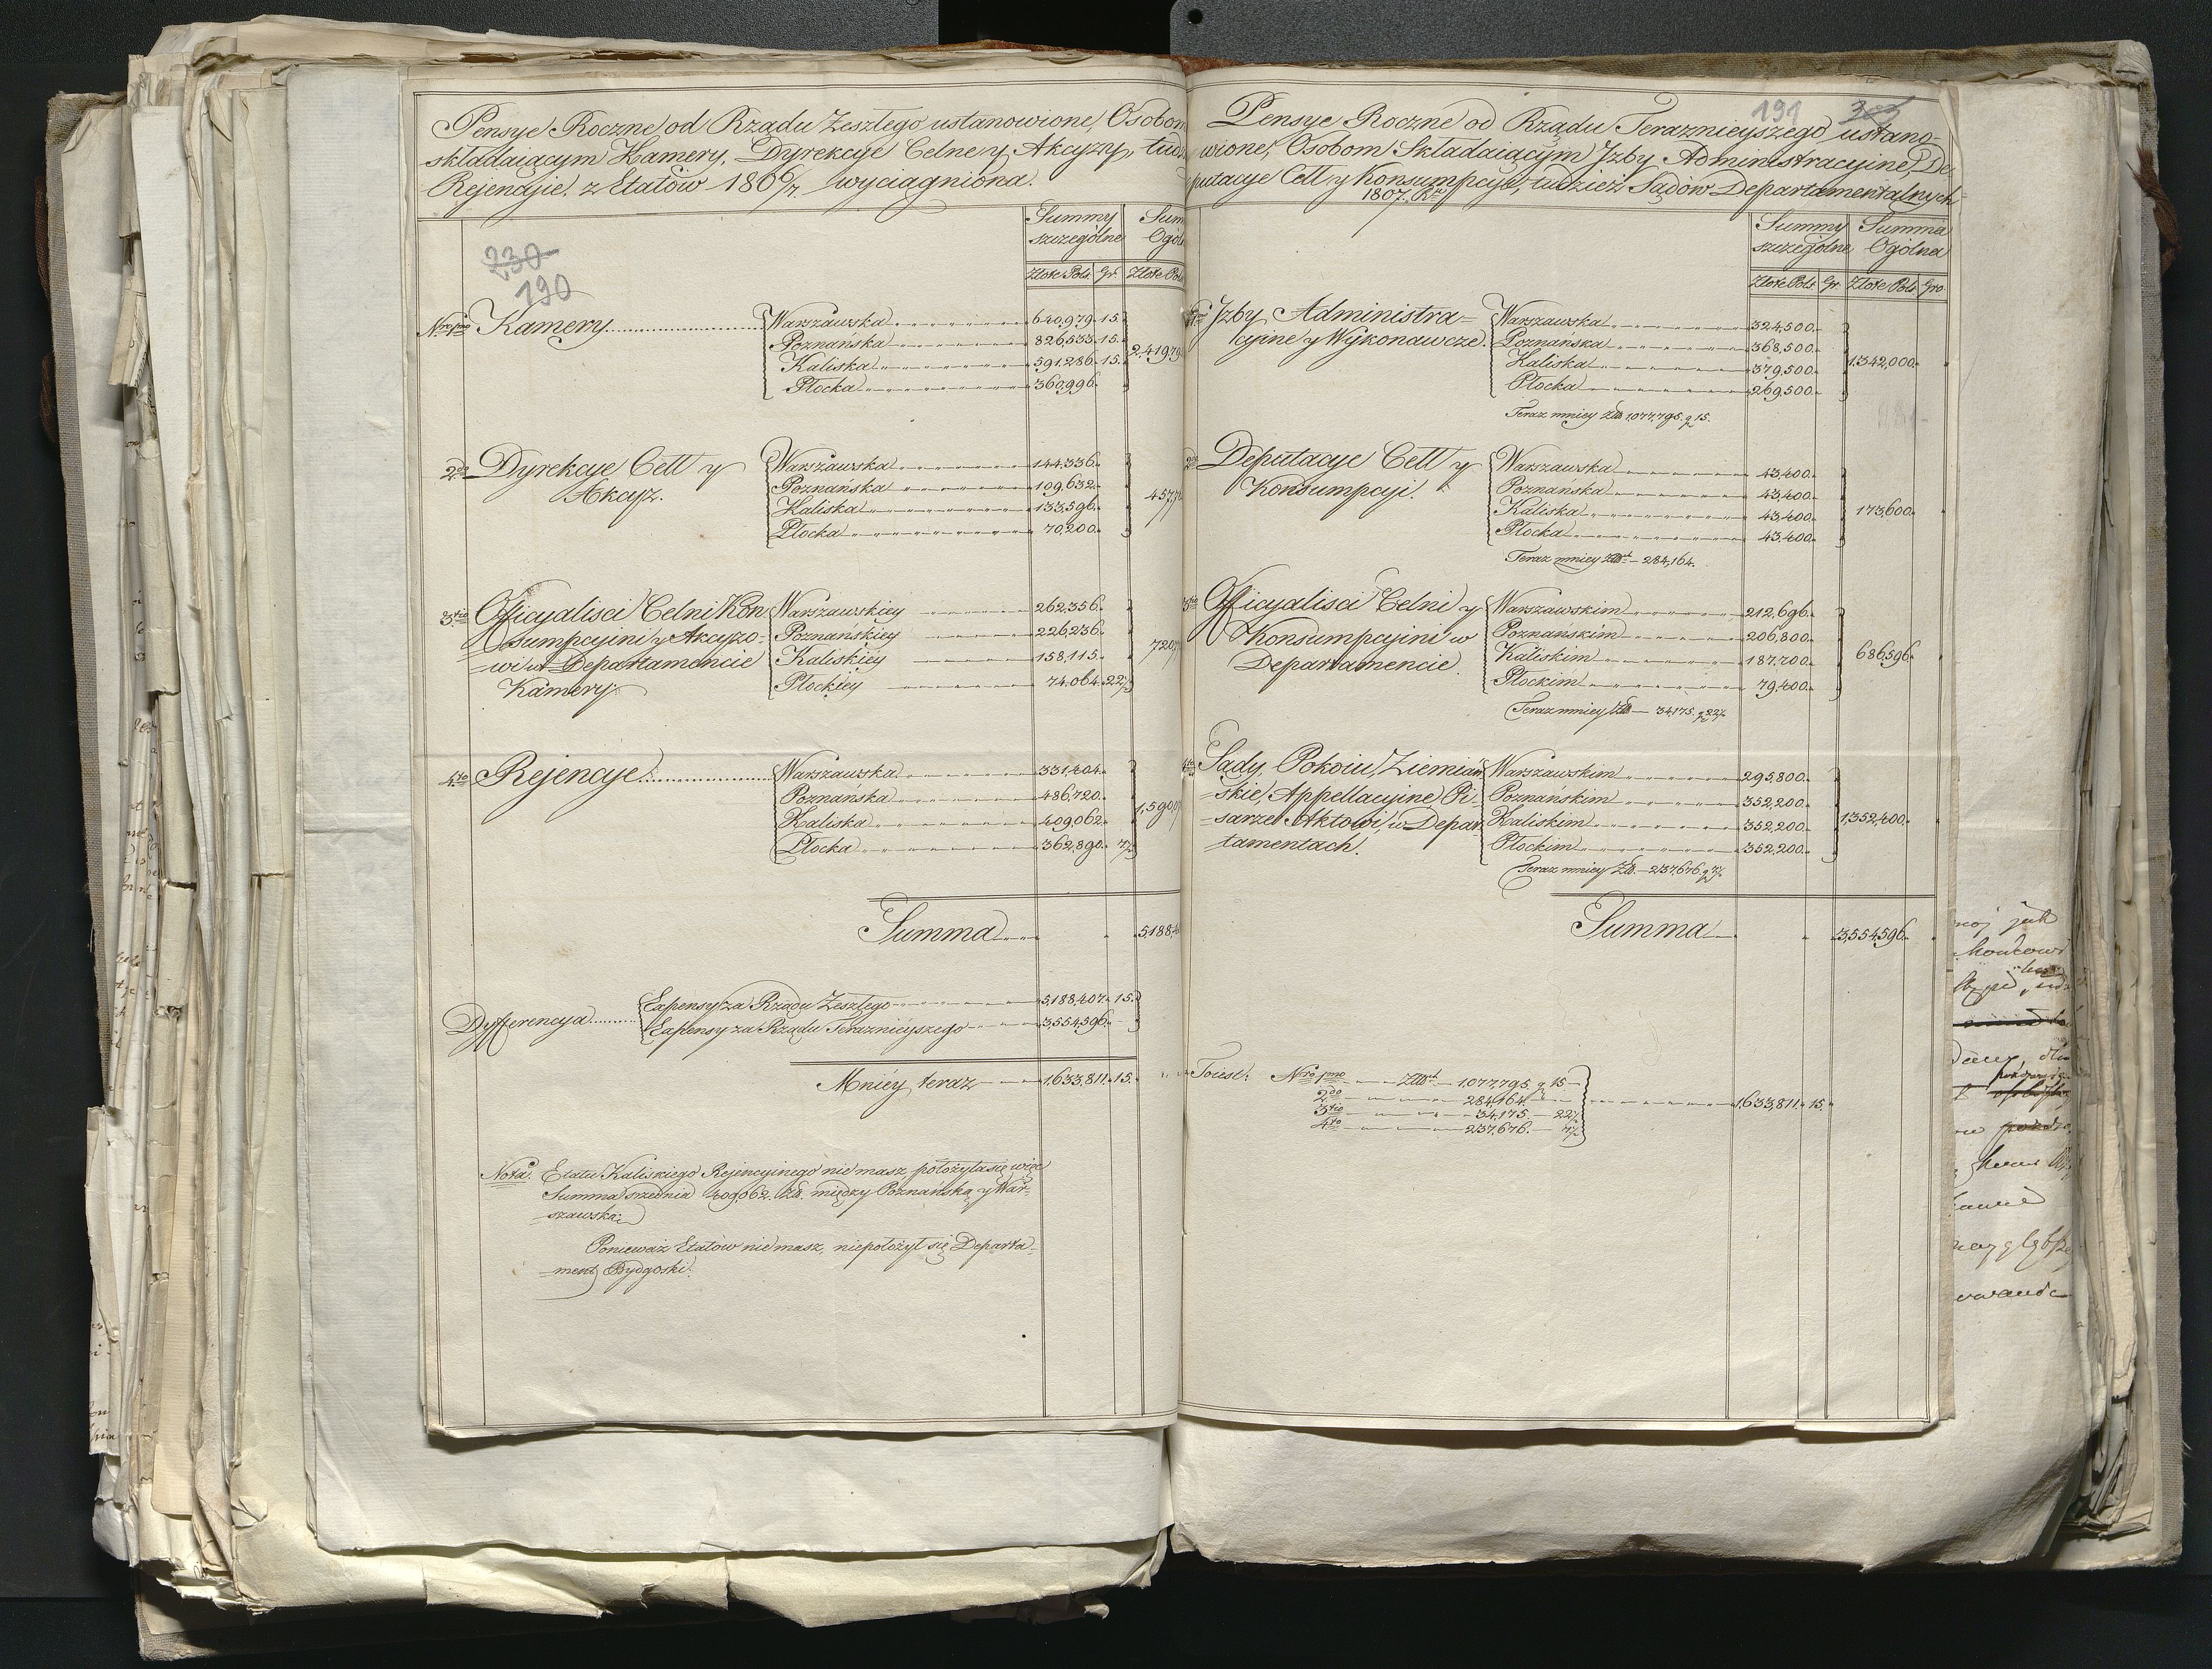 Pensye Roczne od Rządu Zeszłego ustanowione, Osobom
składaiącym Kamery, Dyrekcye Celne y Akcyzy, tud
Rejencyie, z Etatów 1806/7. wyciągniona.
230
190
Summy
szczególne
Zlote Pols. Gr. Zlote Pols
Nro 1mo Kamery
Warszawska 640,979. 15.
Poznańska 826,535. 15.
Kaliska 591,286. 15. 2,41979
Płocka 360,996.
2do Dyrekcye Cell y
Akcyz.
Warszawska 144,336.
Poznańska 109,632. 457,7
Kaliska 133,596.
Płocka 70,200.
3tio Officyalisci Celni Kon
sumpcyini y Akcyzo-
wi w Departamencie
Kamery
Warszawskiey 262,356.
Poznańskiey 226,236.
Kaliskiey 158,115. 720,7
Płockiey 74,064. 22½
4to Rejencye
Warszawska 331,404.
Poznańska 486,720.
Kaliska 409,062. 1,590,0
Płocka 362,890. 7½
Summa 5,188,4
Dyfferencya
Expensy za Rządu Zeszłego 5,188,407. 15.
Expensy za Rządu Teraznieyszego 3,554,596.
Mniéy teraz 1,633,811. 15.
Nota. Etatu Kaliskiego Rejencyinego nie masz położyła się więc
Summa srzednia 409,062. Zł. między Poznańską y War-
szawską
Ponieważ Etatów nie masz, niepołożył się Departa-
ment Bydgoski.
191
Pensye Roczne od Rządu Teraznieyszego ustano-
wione, Osobom Składaiącym Jzby Administracyine, De-
putacye Cell y Konsumpcye, tudzież Sądów Departamentalnych
1807. Ru
Summy Summa
szczegolne Ogólna
Złote Pols Gr. Złote Pols Gro
1mo Jzby Administra-
cyine y Wykonawcze
Warszawska 324,500.
Poznańska 368,500.
Kaliska 379,500. 1,342,000.
Płocka 269,500.
Teraz mniey Zł 1,077,795. g 15.
2do Deputacye Cell y
Konsumpcyi.
Warszawska 43,400.
Poznańska 43,400.
Kaliska 43,400. 173,600.
Płocka 43,400.
Teraz mniey Zł — 284,164.
3tio Officyalisci Celni y
Konsumpcyini w
Departamencie
Warszawskim 212,696.
Poznańskim 206,800.
Kaliskim 187,700. 686,596.
Płockim 79,400.
Teraz mniey Zł — 34,175. g 22½
4to Sądy, Pokoiu, Ziemian
skie, Appellacyine, Pi-
sarze Aktowi, w Depar
tamentach.
Warszawskim 295,800.
Poznańskim 352,200.
Kaliskim 352,200. 1,352,400.
Płockim 352,200.
Teraz mniey Zł. — 237,676. g 7½
Summa 3,554,596.
Toiest: Nro 1mo — Zł — 1,077,795. g 15
2do — 284,164.
3tio — 34,175. — 22½
4to — 237,676. — 7½
1,633,811. 15.